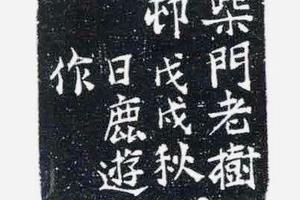 柴門老樹
邨戊戌秋
日鹿遊
作